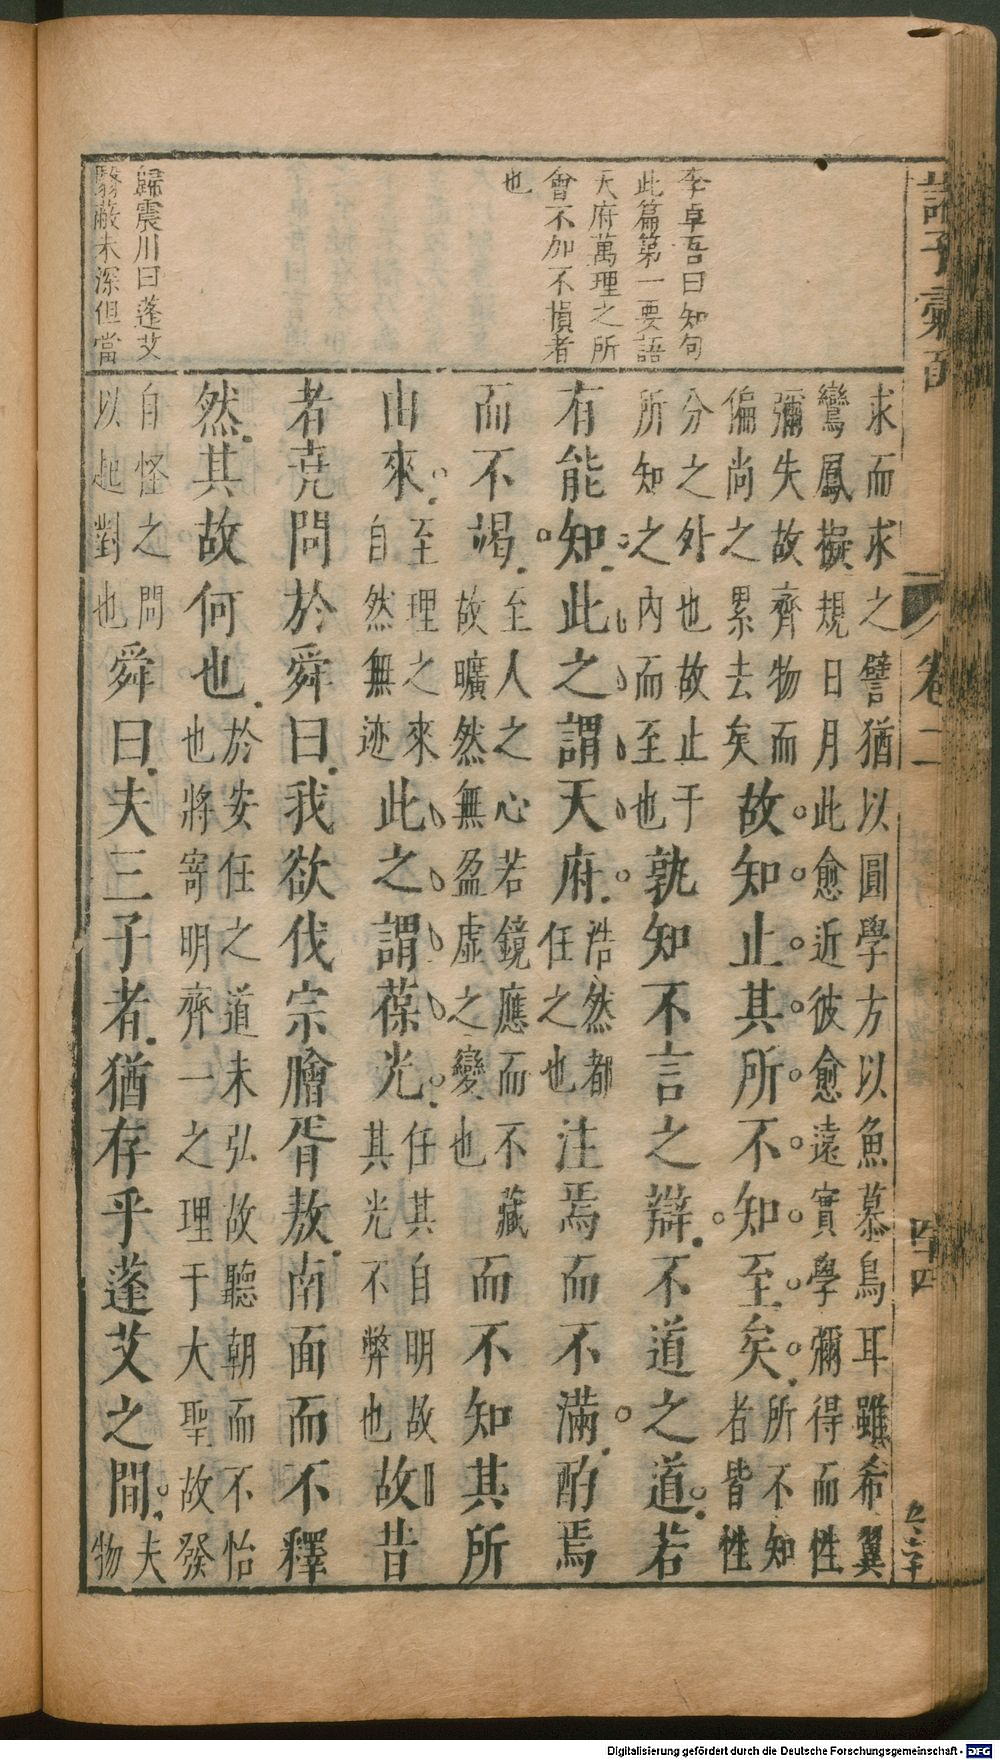 諸子彙函
卷二
四十四
李卓吾曰知句
此篇第一要語
天府萬理之所
會不加不損者
也
歸震川曰蓬艾
翳蔽未深但當
求而求之譬猶以圓學方以魚慕鳥耳雖希翼
鸞鳳擬規日月此愈近彼愈遠實學彌得而性
彌失故齊物而偏尚之累去矣故知止其所不知至矣所不知者皆性
分之外也故止于所知之內而至也孰知不言之辯不道之道若
有能知此之謂天府浩然都任之也注焉而不滿酌焉
而不竭至人之心若鏡應而不藏故曠然無盈虛之變也而不知其所
由來至理之來自然無迹此之謂葆光任其自明故其光不弊也故昔
者堯問於舜曰我欲伐宗膾胥敖南面而不釋
然其故何也於安任之道未弘故聽朝而不怡也將寄明齊一之理于大聖故發
自怪之問以起對也舜曰夫三子者猶存乎蓬艾之間夫物
Digitalisierung gefördert durch die Deutsche Forschungsgemeinschaft - DFG